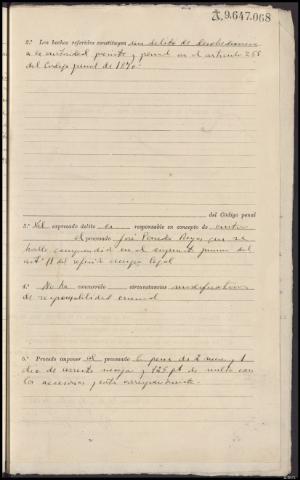 A,9.647.068
2.º Los hechos referidos constituyen un delito de desobediencia
a la autoridad previsto y penado en el artículo 265
del Código penal de 1870.
del Código penal
3.º Del expresado delito es responsable en concepto de autor
el procesado José Poveda Reyes que se
halla comprendido en el número primero del
artº 11 del referido cuerpo legal
4.º No ha concurrido circunstancias modificativas
de responsabilidad criminal
5.º Procede imponer al procesado la pena de 2 meses y 1
día de arresto mayor y 125 pts de multa con
las accesorias y costas correspondientes.